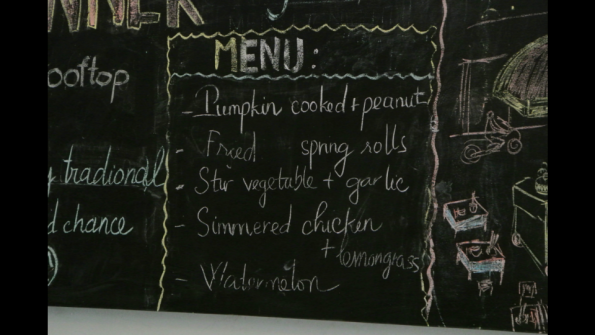 NNER
ooftop
y tradional
d chance
MENU:
- Pumpkin cooked + peanut
- Fried spring rolls
- Stir vegetable + garlic
- Simmered chicken
+ lemongrass
- Watermelon